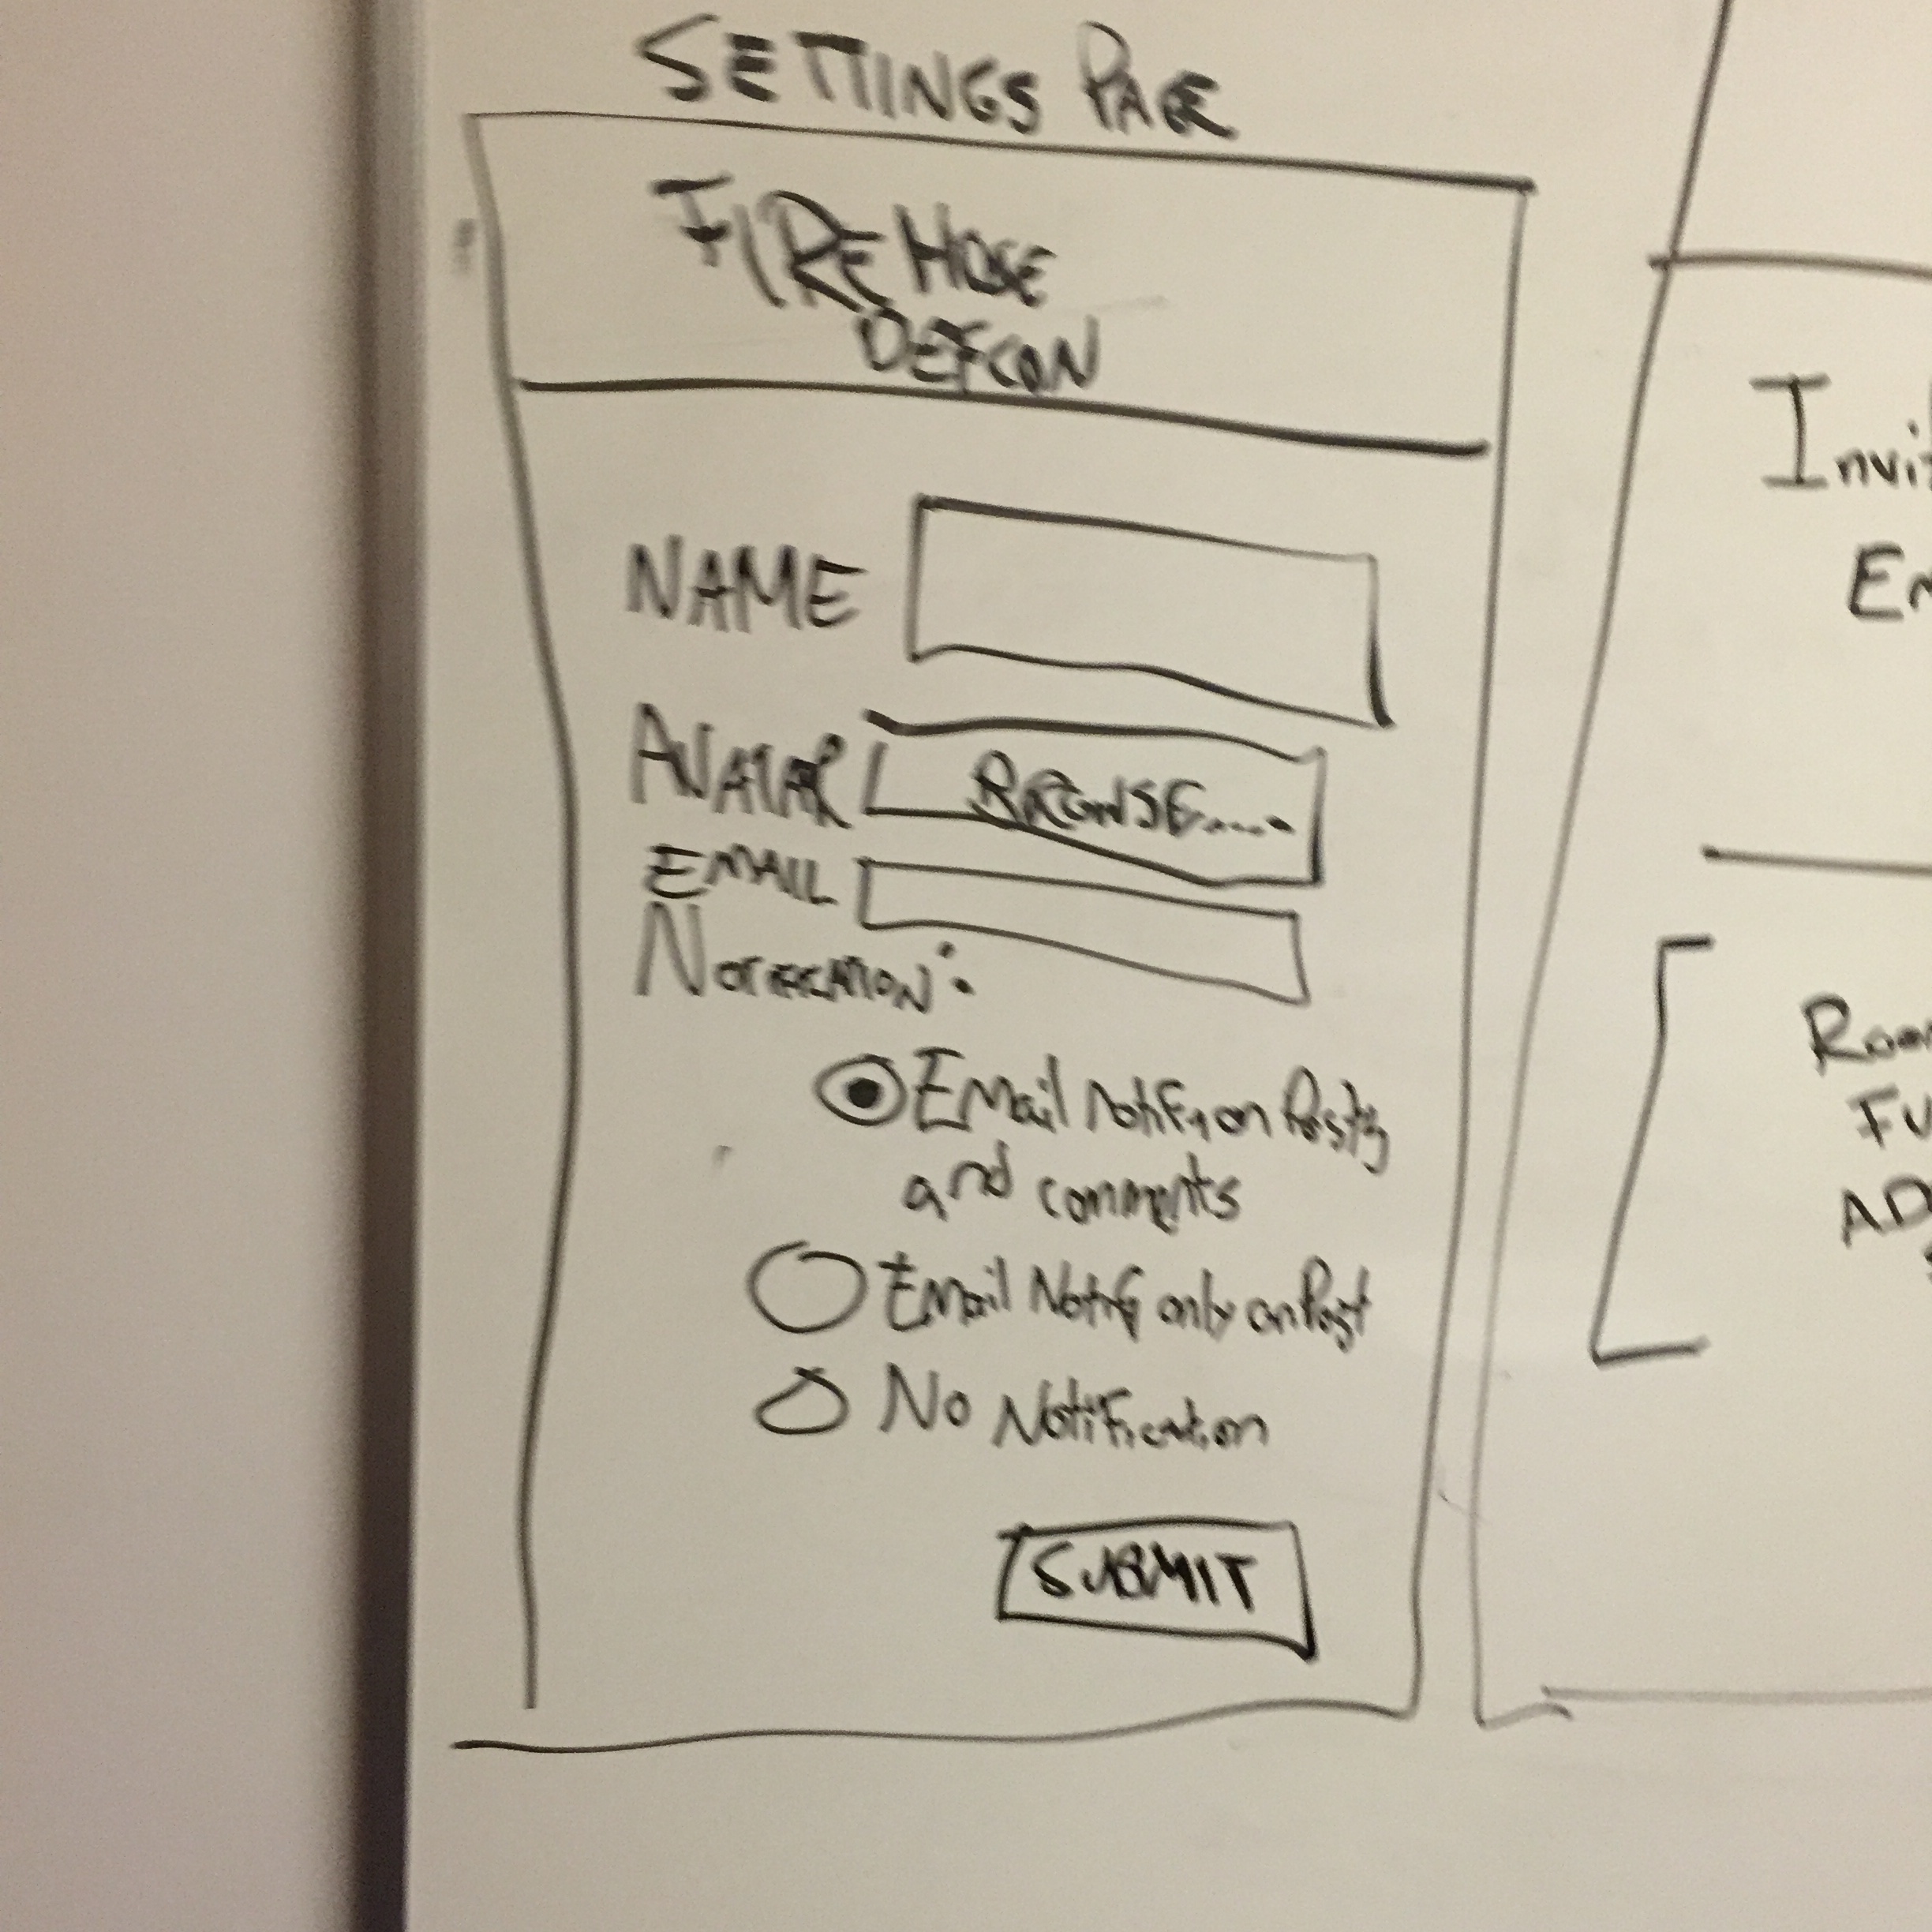 SETTINGS PAGE
FIREHOSE
DEFCON
NAME
AVATAR BROWSE....
EMAIL
NOTIFICATION:
Email notify on Posts
and comments
Email Notify only on Post
No Notification
SUBMIT